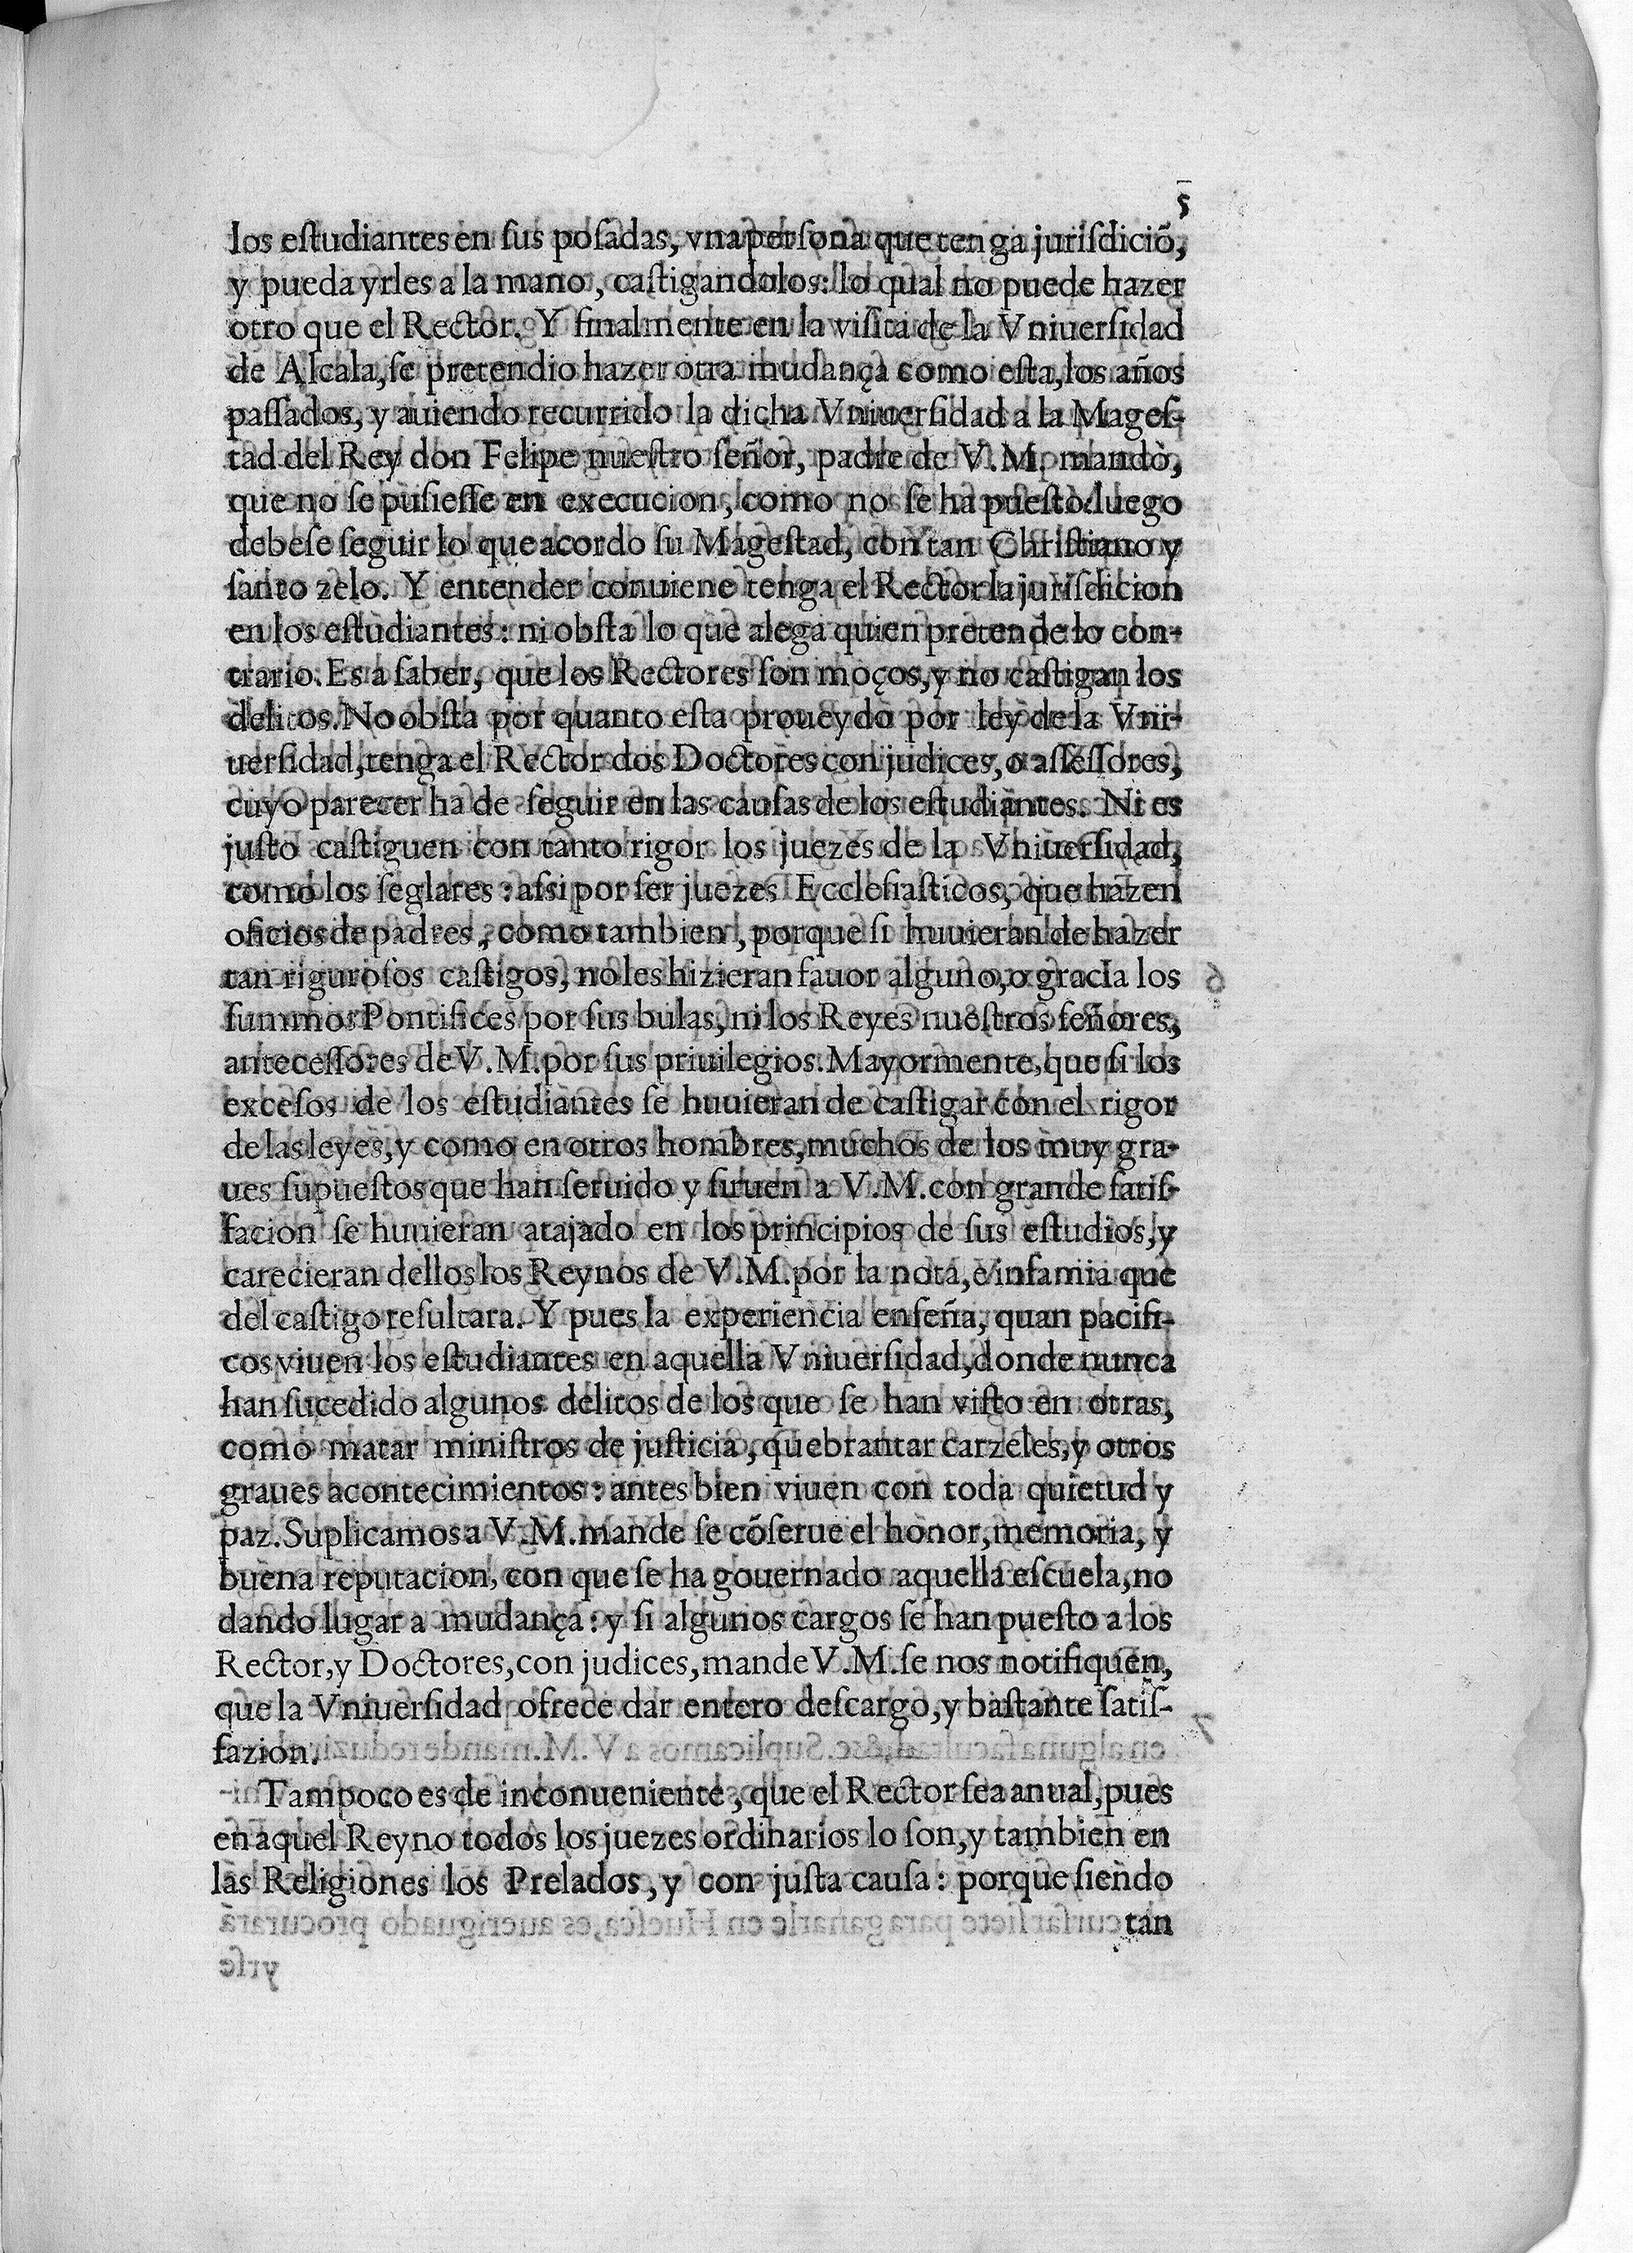 5
los eſtudiantes en ſus poſadas, vna perſona que tenga juriſdiciõ,
y pueda yrles a la mano, caſtigandolos: lo qual no puede hazer
otro que el Rector. Y finalmente en la viſita de la Vniuerſidad
de Alcala, ſe pretendio hazer otra mudança como eſta, los años
paſſados, y auiendo recurrido la dicha Vniuerſidad a la Mageſ-
tad del Rey don Felipe nueſtro ſeñor, padre de V.M. mandò,
que no ſe puſieſſe en execucion, como no ſe ha pueſto: luego
debeſe ſeguir lo que acordo ſu Mageſtad, con tan Chriſtiano y
ſanto zelo. Y entender conuiene tenga el Rector la juriſdicion
en los eſtudiantes: ni obſta lo que alega quien pretende lo con-
trario. Es a ſaber, que los Rectores ſon moços, y no caſtigan los
delitos. No obſta por quanto eſta proueydo por ley de la Vni-
uerſidad, tenga el Rector dos Doctores con judices, o aſſeſſores,
cuyo parecer ha de ſeguir en las cauſas de los eſtudiantes. Ni es
juſto caſtiguen con tanto rigor los juezes de la Vniuerſidad,
como los ſeglares: aſsi por ſer juezes Eccleſiaſticos, que hazen
oficios de padres, como tambien, porque ſi huuieran de hazer
tan riguroſos caſtigos, no les hizieran fauor alguno, o gracia los
ſummos Pontifices por ſus bulas, ni los Reyes nueſtros ſeñores,
anteceſſores de V.M. por ſus priuilegios. Mayormente, que ſi los
exceſos de los eſtudiantes ſe huuieran de caſtigar con el rigor
de las leyes, y como en otros hombres, muchos de los muy gra-
ues ſupueſtos que han ſeruido y ſiruen a V.M. con grande ſatiſ-
facion ſe huuieran atajado en los principios de ſus eſtudios, y
carecieran dellos los Reynos de V.M. por la nota, e infamia que
del caſtigo reſultara. Y pues la experiencia enſeña, quan pacifi-
cos viuen los eſtudiantes en aquella Vniuerſidad, donde nunca
han ſucedido algunos delitos de los que ſe han viſto en otras,
como matar miniſtros de juſticia, quebrantar carzeles, y otros
graues acontecimientos: antes bien viuen con toda quietud y
paz. Suplicamos a V.M. mande ſe cõſerue el honor, memoria, y
buena reputacion, con que ſe ha gouernado aquella eſcuela, no
dando lugar a mudança: y ſi algunos cargos ſe han pueſto a los
Rector, y Doctores, con judices, mande V.M. ſe nos notifiquen,
que la Vniuerſidad ofrece dar entero deſcargo, y baſtante ſatiſ-
fazion.
Tampoco es de inconueniente, que el Rector ſea anual, pues
en aquel Reyno todos los juezes ordinarios lo ſon, y tambien en
las Religiones los Prelados, y con juſta cauſa: porque ſiendo
tan